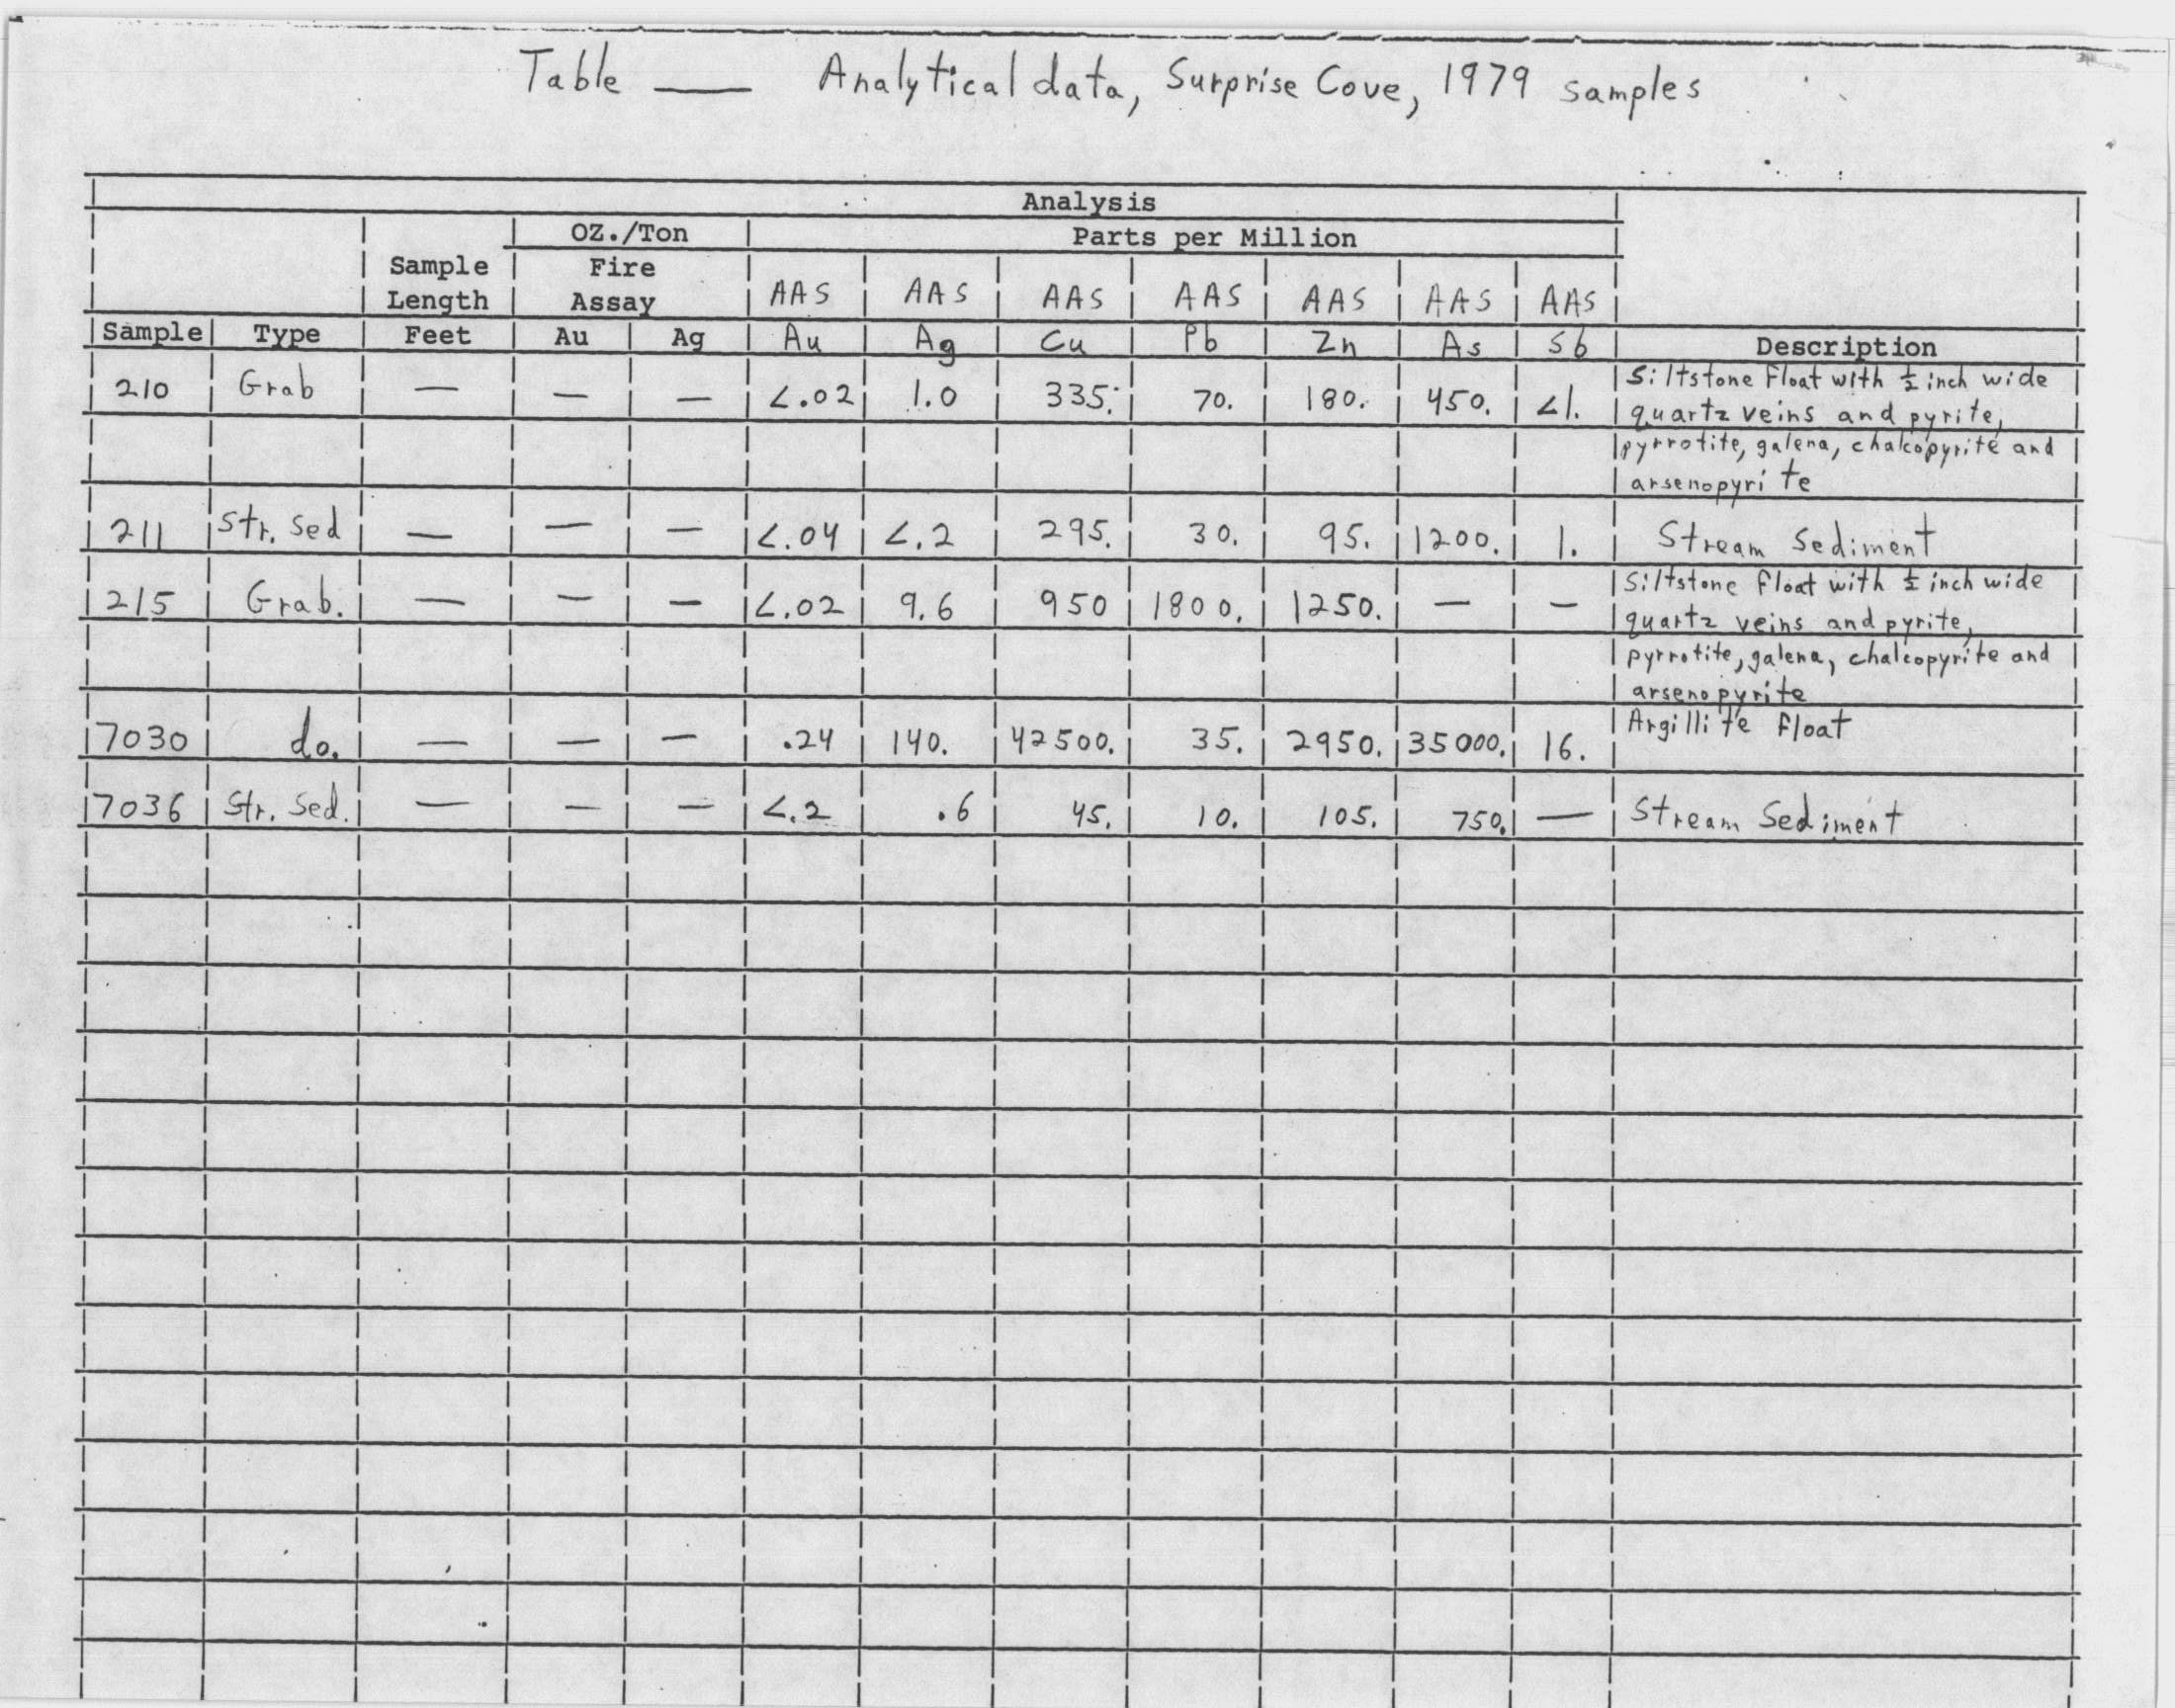 Table — Analytical data, Surprise Cove, 1979 samples
Analysis
OZ./Ton Parts per Million
Sample Fire
Length Assay AAS AAS AAS AAS AAS AAS AAS
Sample Type Feet Au Ag Au Ag Cu Pb Zn As Sb Description
210 Grab — — — <.02 1.0 335. 70. 180. 450. <1. Siltstone Float with ½ inch wide
quartz veins and pyrite,
pyrrotite, galena, chalcopyrite and
arsenopyrite
211 Str. Sed — — — <.04 <.2 295. 30. 95. 1200. 1. Stream Sediment
215 Grab. — — — <.02 9.6 950 1800. 1250. — — Siltstone float with ½ inch wide
quartz veins and pyrite,
pyrrotite, galena, chalcopyrite and
arsenopyrite
7030 do. — — — .24 140. 42500. 35. 2950. 35000. 16. Argillite float
7036 Str. Sed. — — — <.2 .6 45. 10. 105. 750. — Stream Sediment